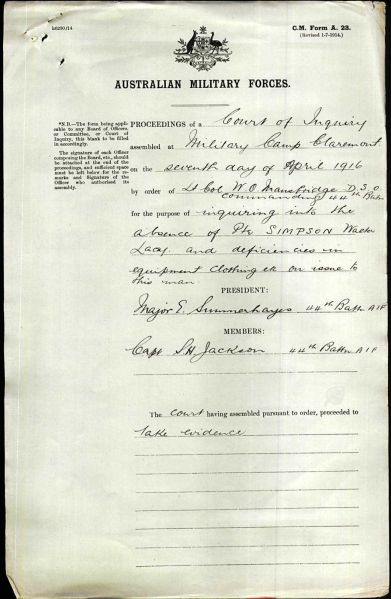 b6290/14
C.M. Form A. 23.
(Revised 1-7-1914.)
AUSTRALIAN MILITARY FORCES.
*N.B.—The form being applicable to any Board of Officers, or Committee, or Court of Inquiry, this blank to be filled in accordingly.
The signature of each Officer composing the Board, etc., should be attached at the end of the proceedings and sufficient space must be left below for the remarks and Signature of the Officer who authorised its assembly.
PROCEEDINGS of a Court of Inquiry
assembled at Military Camp Claremont
on the seventh day of April 1916
by order of Lt Col W.O Mansbridge D.S.O
Commanding 44th Batn
for the purpose of inquiring into the
absence of Pte SIMPSON Walter
Lacy and deficiencies in
equipment clothing etc on issue to
this man
PRESIDENT:
Major E. Summerhayes 44th Battn AIF
MEMBERS:
Capt SH Jackson 44th Battn AIF
The Court having assembled pursuant to order, proceeded to
take evidence